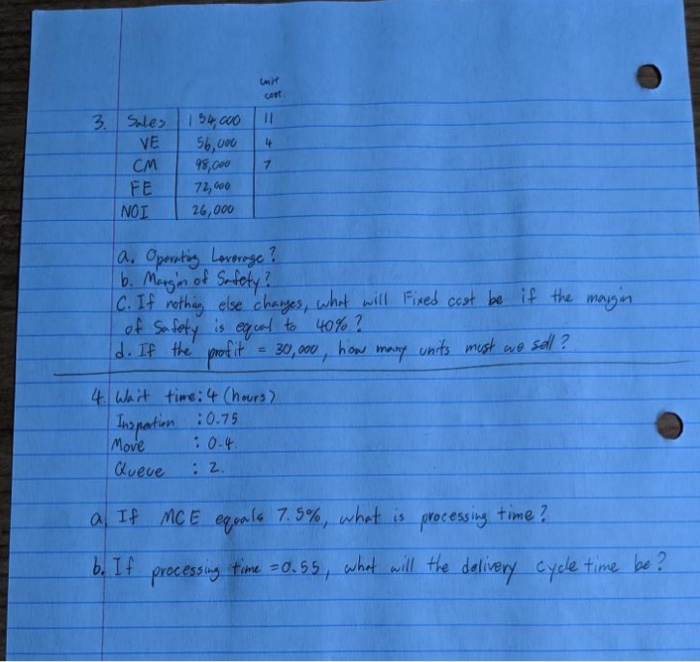 unit
cost
3. Sales 154,000 11
VE 56,000 4
CM 98,000 7
FE 72,000
NOI 26,000
a. Operating Leverage?
b. Margin of Safety?
C. If nothing else changes, what will Fixed cost be if the margin
of Safety is equal to 40%?
d. If the profit = 30,000, how many units must we sell?
4. Wait time: 4 (hours)
Inspection : 0.75
Move : 0.4.
Queue : 2.
a If MCE equals 7.5%, what is processing time?
b. If processing time = 0.55, what will the delivery cycle time be?